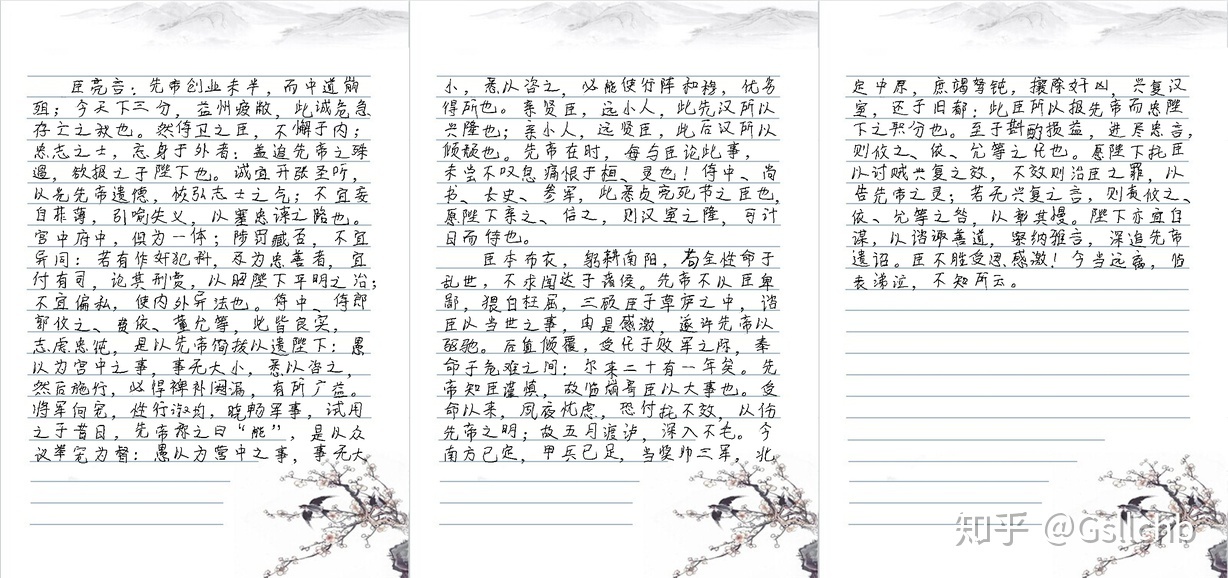 臣亮言：先帝创业未半，而中道崩
殂；今天下三分，益州疲敝，此诚危急
存亡之秋也。然侍卫之臣，不懈于内；
忠志之士，忘身于外者：盖追先帝之殊
遇，欲报之于陛下也。诚宜开张圣听，
以光先帝遗德，恢弘志士之气；不宜妄
自菲薄，引喻失义，以塞忠谏之路也。
宫中府中，俱为一体；陟罚臧否，不宜
异同：若有作奸犯科，及为忠善者，宜
付有司，论其刑赏，以昭陛下平明之治；
不宜偏私，使内外异法也。侍中、侍郎
郭攸之、费依、董允等，此皆良实，
志虑忠纯，是以先帝简拔以遗陛下：愚
以为宫中之事，事无大小，悉以咨之，
然后施行，必得裨补阙漏，有所广益。
将军向宠，性行淑均，晓畅军事，试用
之于昔日，先帝称之曰“能”，是以众
议举宠为督：愚以为营中之事，事无大
小，悉以咨之，必能使行阵和穆，优劣
得所也。亲贤臣，远小人，此先汉所以
兴隆也；亲小人，远贤臣，此后汉所以
倾颓也。先帝在时，每与臣论此事，
未尝不叹息痛恨于桓、灵也！侍中、尚
书、长史、参军，此悉贞亮死节之臣也，
愿陛下亲之、信之，则汉室之隆，可计
日而待也。
臣本布衣，躬耕南阳，苟全性命于
乱世，不求闻达于诸侯。先帝不以臣卑
鄙，猥自枉屈，三顾臣于草庐之中，谘
臣以当世之事，由是感激，遂许先帝以
驱驰。后值倾覆，受任于败军之际，奉
命于危难之间：尔来二十有一年矣。先
帝知臣谨慎，故临崩寄臣以大事也。受
命以来，夙夜忧虑，恐付托不效，以伤
先帝之明；故五月渡泸，深入不毛。今
南方已定，甲兵已足，当奖帅三军，北
定中原，庶竭驽钝，攘除奸凶，兴复汉
室，还于旧都：此臣所以报先帝而忠陛
下之职分也。至于斟酌损益，进尽忠言，
则攸之、依、允等之任也。愿陛下托臣
以讨贼兴复之效，不效则治臣之罪，以
告先帝之灵；若无兴复之言，则责攸之、
依、允等之咎，以彰其慢。陛下亦宜自
谋，以谘诹善道，察纳雅言，深追先帝
遗诏。臣不胜受恩感激！今当远离，临
表涕泣，不知所云。
知乎 @Gsllchb